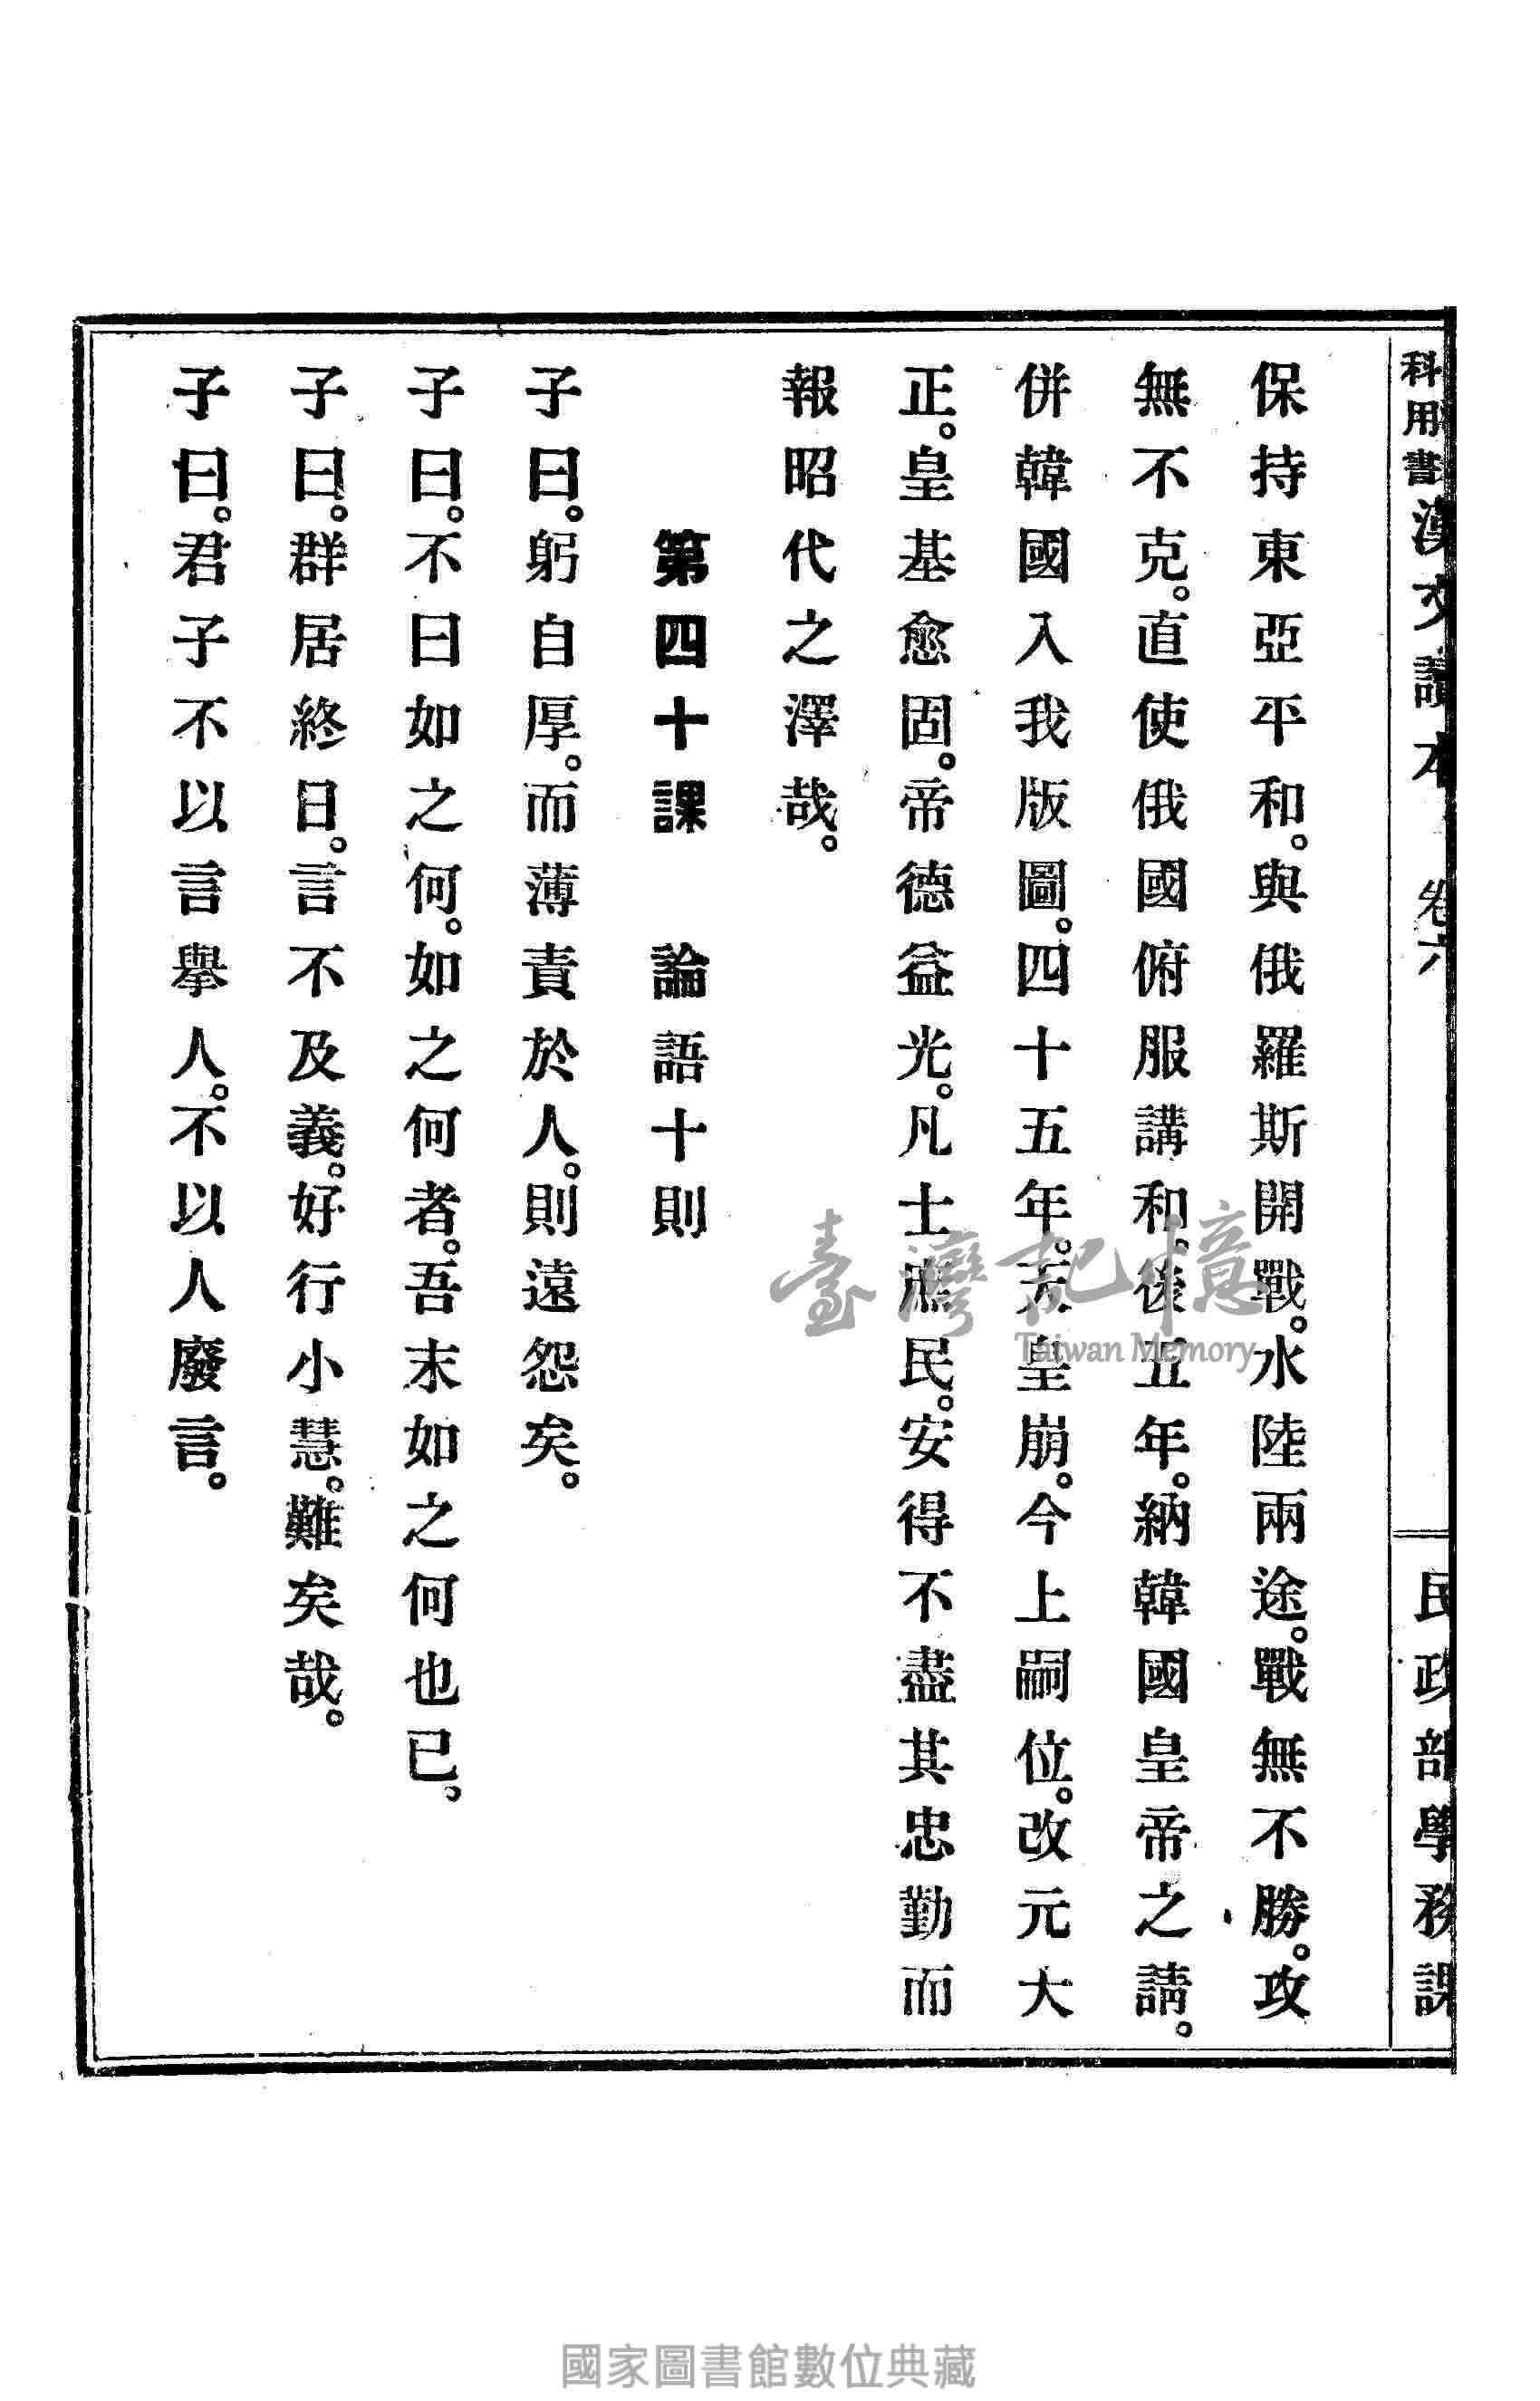 科用書漢文讀本 卷六 民政部學務課
保持東亞平和。與俄羅斯開戰。水陸兩途。戰無不勝。攻
無不克。直使俄國俯服講和。後五年。納韓國皇帝之請。
併韓國入我版圖。四十五年。天皇崩。今上嗣位。改元大
正。皇基愈固。帝德益光。凡士庶民。安得不盡其忠勤而
報昭代之澤哉。
第四十課 論語十則
子曰。躬自厚。而薄責於人。則遠怨矣。
子曰。不曰如之何。如之何者。吾末如之何也已。
子曰。群居終日。言不及義。好行小慧。難矣哉。
子曰。君子不以言舉人。不以人廢言。
臺灣記憶
Taiwan Memory
國家圖書館數位典藏